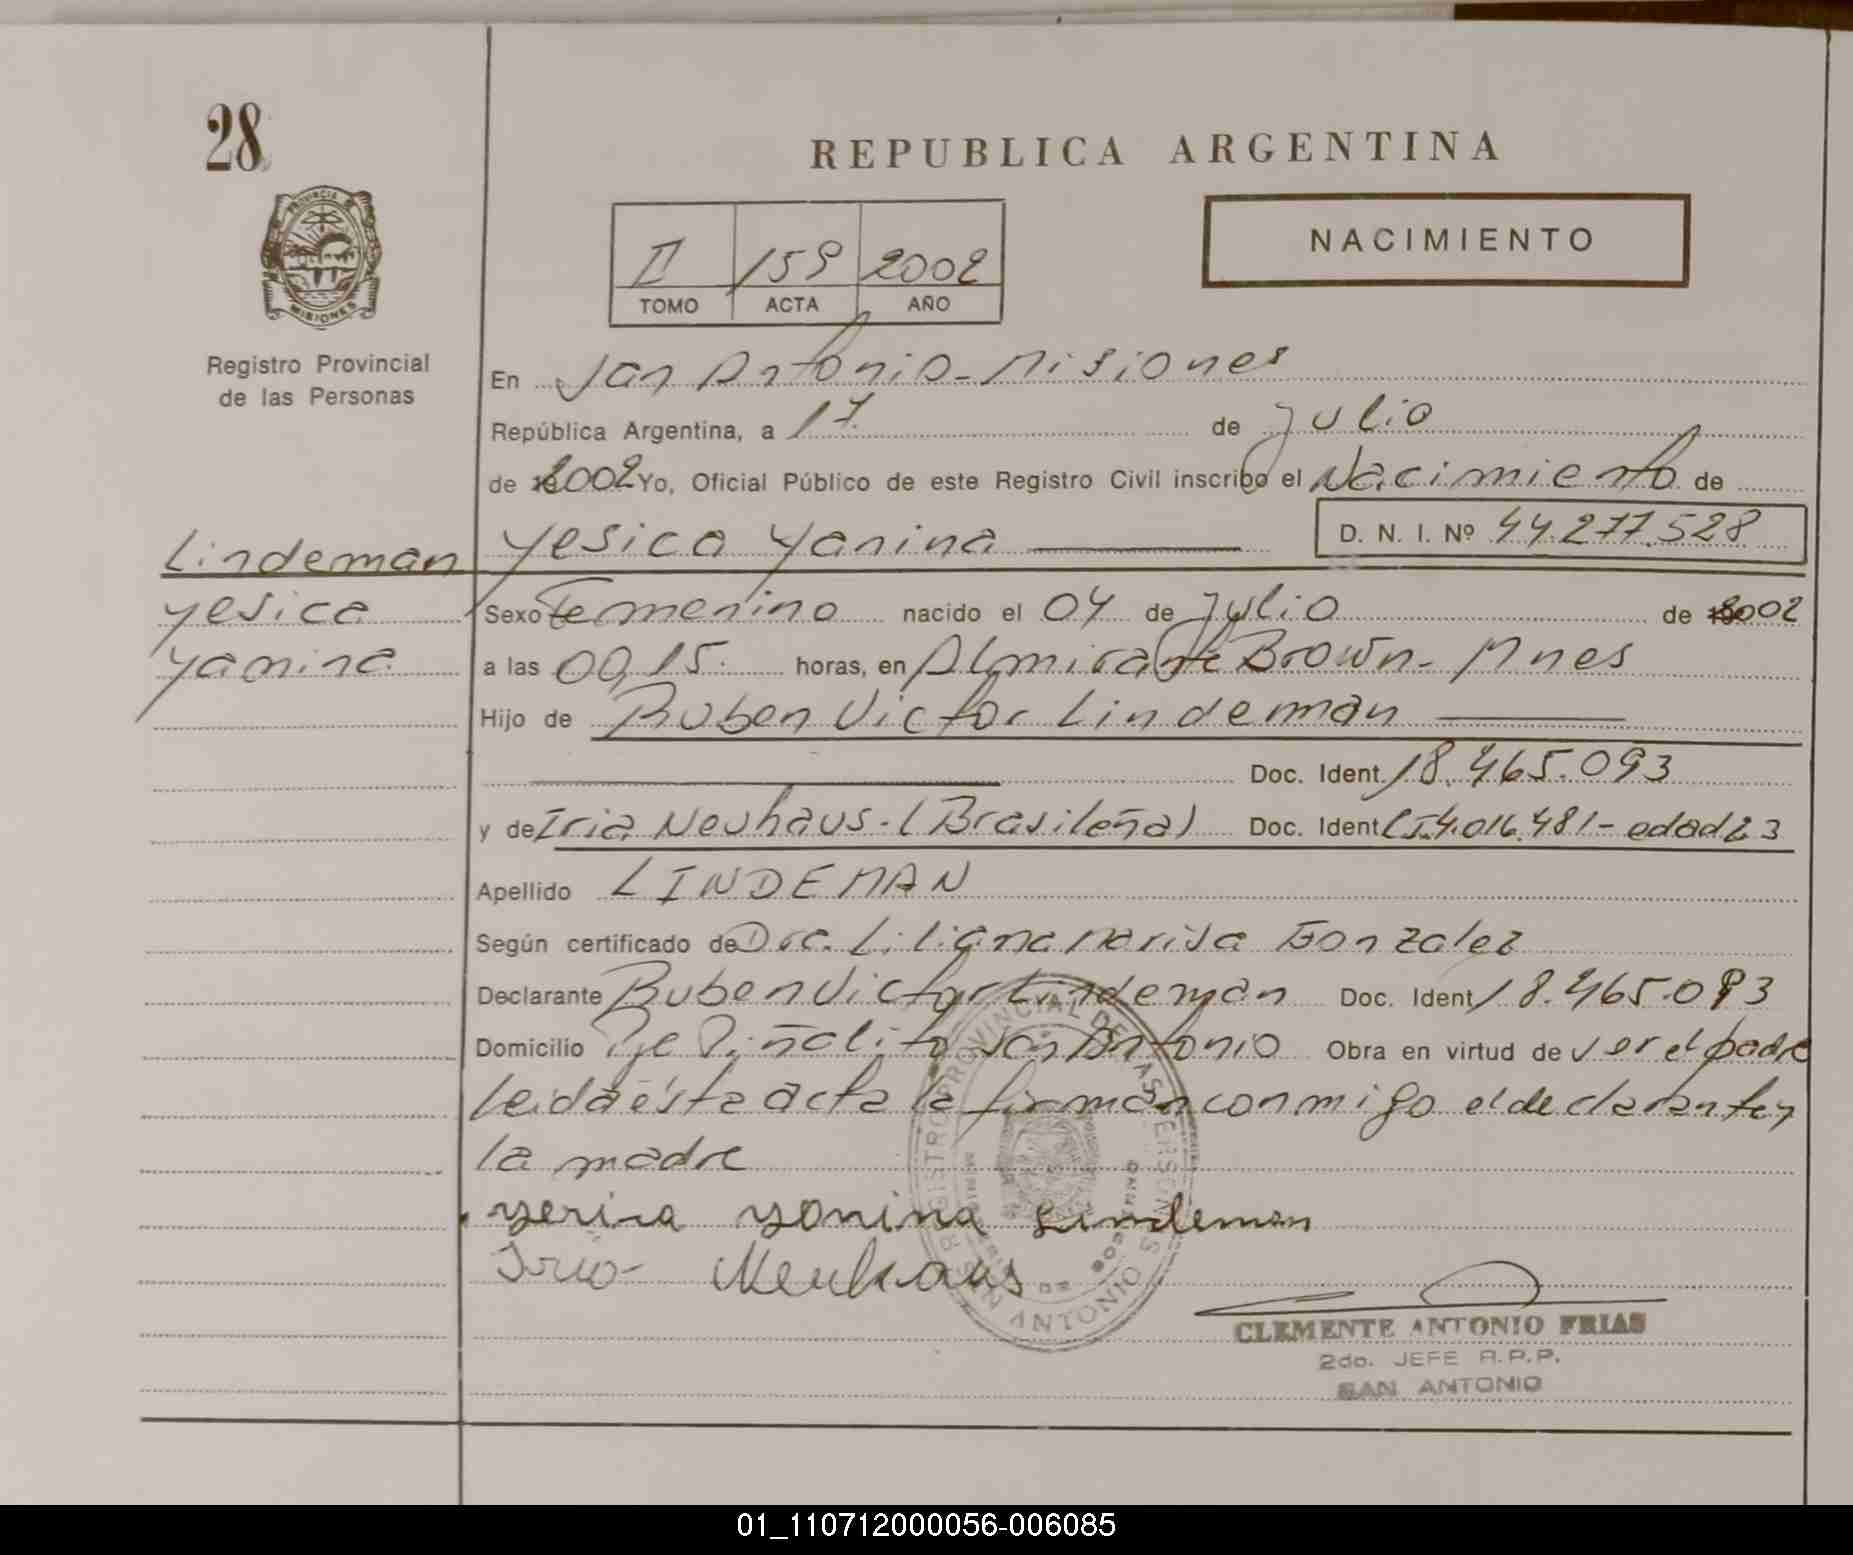 28
REPUBLICA ARGENTINA
NACIMIENTO
II 159 2002
TOMO ACTA AÑO
PROVINCIA DE
MISIONES
Registro Provincial
de las Personas
En San Antonio - Misiones
República Argentina, a 17 de Julio
de 2002 Yo, Oficial Público de este Registro Civil inscribo el Nacimiento de
Yesica Yanina D. N. I. Nº 44.277.528
Lindeman
Yesica
Yanina
Sexo Femenino nacido el 04 de Julio de 2002
a las 00,15. horas, en Almirante Brown - Mnes
Hijo de Ruben Victor Lindeman
Doc. Ident. 18.465.093
y de Iria Neuhaus - (Brasileña) Doc. Ident. C.I. 4.016.481 - edad 23
Apellido LINDEMAN
Según certificado de Dra. Liliana Marisa Gonzalez
Declarante Ruben Victor Lindeman Doc. Ident. 18.465.093
Domicilio Pje Piñalito San Antonio Obra en virtud de ser el padre
Leida ésta acta la firman conmigo el declarante y
la madre
Yerica Yonina Lindeman
Iria Neuhaus
REGISTRO PROVINCIAL DE LAS PERSONAS
SAN ANTONIO
CLEMENTE ANTONIO FRIAS
2do. JEFE R.P.P.
SAN ANTONIO
01_110712000056-006085